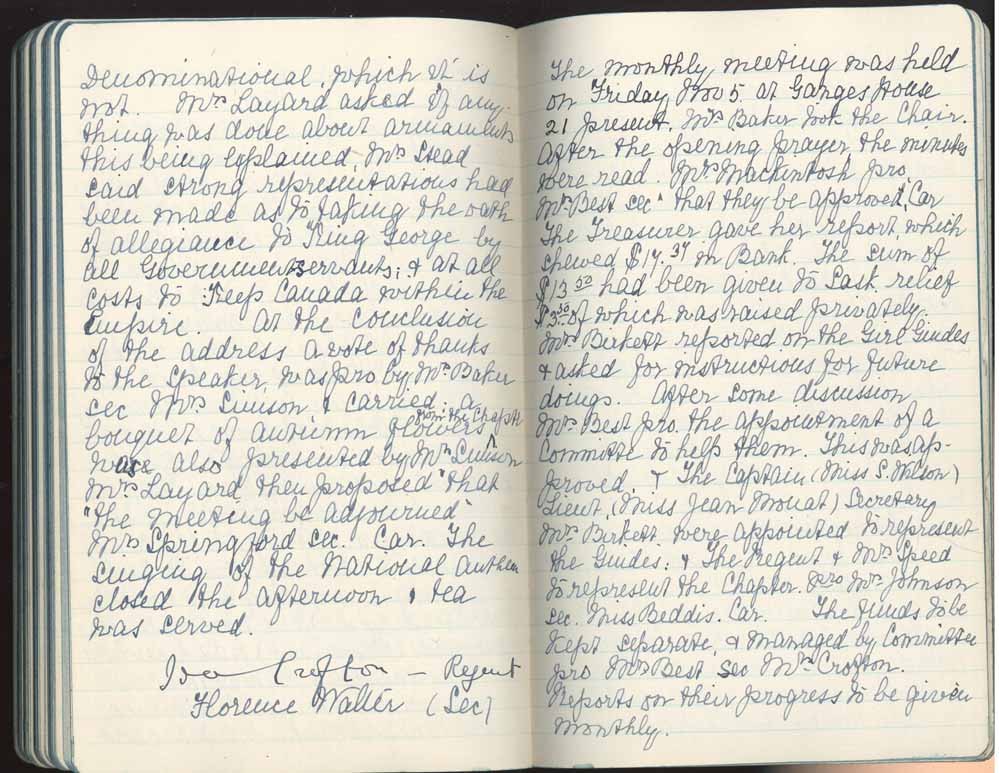 Denominational, which it is
not. Mrs Layard asked if any-
thing was done about armaments
this being explained, Mrs Stead
said strong representations had
been made as to taking the oath
of allegiance to King George by
all Government servants; & at all
costs to Keep Canada within the
Empire. At the conclusion
of the address a vote of thanks
to the speaker, was pro by Mrs Baker
sec Mrs Simson & carried. A
bouquet of autumn flowers from the Chapter
was also presented by Mrs Simson
Mrs Layard then proposed "that
"the meeting be adjourned"
Mrs Springford sec. Car. The
singing of the National Anthem
closed the afternoon & tea
was served.
Ida Crofton - Regent
Florence Walter (Sec)
The monthly meeting was held
on Friday Nov 5. at Ganges House
21 present. Mrs Baker took the Chair.
After the opening prayer the minutes
were read. Mrs Mackintosh pro.
Mrs Best sec "that they be approved, Car
The Treasurer gave her report, which
shewed $17.37 in Bank. The sum of
$13.50 had been given to Sask. relief
$3.50 of which was raised privately.
Mrs Birkett reported on the Girl Guides
& asked for instructions for future
doings. After some discussion
Mrs Best pro. the appointment of a
committe to help them. This was ap-
proved. & The Captain (Miss S. Wilson)
Lieut, (Miss Jean Mouat) Secretary
Mrs Birkett. were appointed to represent
the Guides; & The Regent & Mrs Speed
to represent the Chapter. Pro Mrs Johnson
sec. Miss Beddis. Car. The funds to be
Kept separate, & managed by Committee
pro Mrs Best Sec Mrs Crofton.
Reports on their progress to be given
monthly.